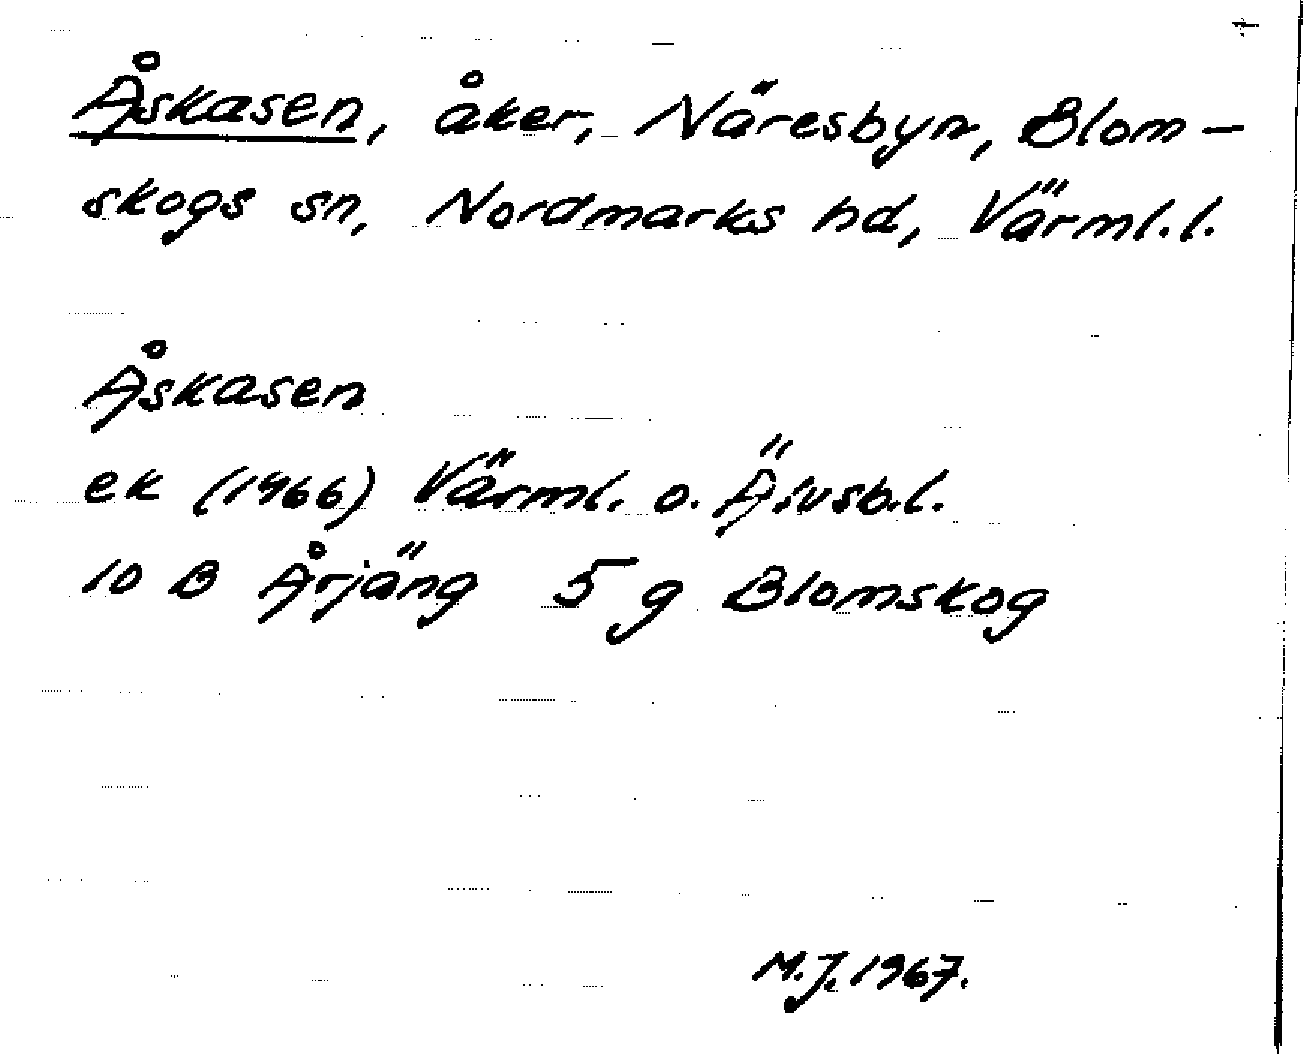 Åskasen, åker, Näresbyn, Blom-
skogs sn, Nordmarks hd, Värml.l.
Åskasen
ek (1966) Värml. o. Älvsb.l.
10 B Årjäng 5 g Blomskog
M.J. 1967.